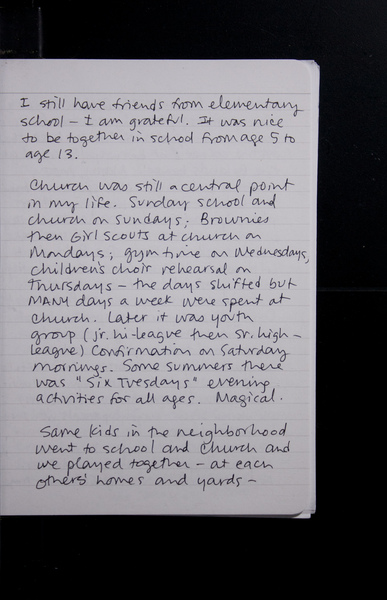 I still have friends from elementary
school - I am grateful. It was nice
to be together in school from age 5 to
age 13.
Church was still a central point
in my life. Sunday school and
church on Sundays; Brownies
then Girl Scouts at church on
Mondays; gym time on Wednesdays,
children's choir rehearsal on
Thursdays - the days shifted but
MANY days a week were spent at
church. Later it was youth
group (jr. hi-league then Sr. high-
league) Confirmation on Saturday
mornings. Some summers there
was "Six Tuesdays" evening
activities for all ages. Magical.
Same kids in the neighborhood
went to school and church and
we played together - at each
others' homes and yards -